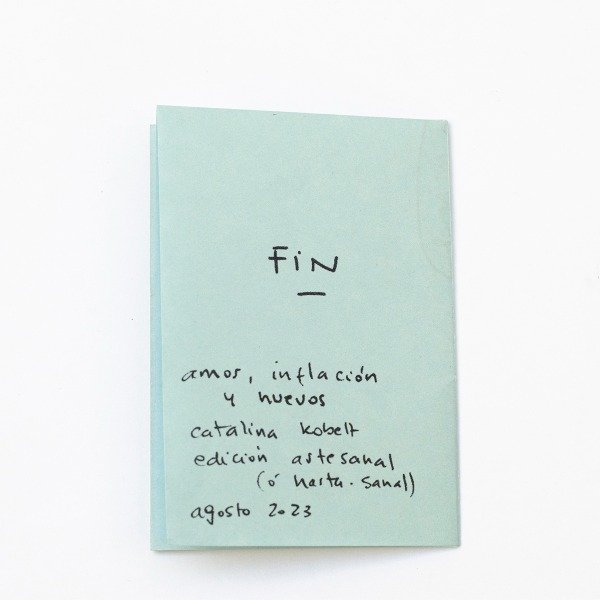 FiN
amor, inflación
y huevos
catalina kobelt
edición artesanal
(ó harta-sanal)
agosto 2023